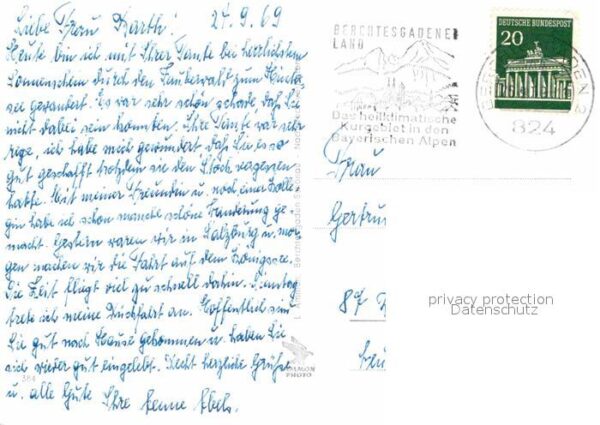 27.9.69
Liebe Frau Barth!
Heute bin ich mit Ihrer Tante bei herrlichstem
Sonnenschein durch den Zauberwald zum Hinter-
see gewandert. Es war sehr schön schade, daß Sie
nicht dabei sein konnten. Ihre Tante war sehr
rege, ich habe mich gewundert daß sie es so
gut geschafft trotzdem sie den Stock vergessen
hatte. Mit meiner Freundin u. noch einer Kolle-
gin habe ich schon manche schöne Wanderung ge-
macht. Gestern waren wir in Salzburg u. mor-
gen machen wir die Fahrt auf dem Königssee.
Die Zeit fliegt viel zu schnell dahin. Sonntag
trete ich meine Rückfahrt an. Hoffentlich sind
Sie gut nach Hause gekommen u. haben Sie
sich wieder gut eingelebt. Recht herzliche Grüße
u. alle Gute Ihre
384
BERCHTESGADENER
LAND
Das heilklimatische
Kurgebiet in den
Bayerischen Alpen
DEUTSCHE BUNDESPOST
20
824
Frau
Gertru
87
privacy protection
Datenschutz
PHOTO